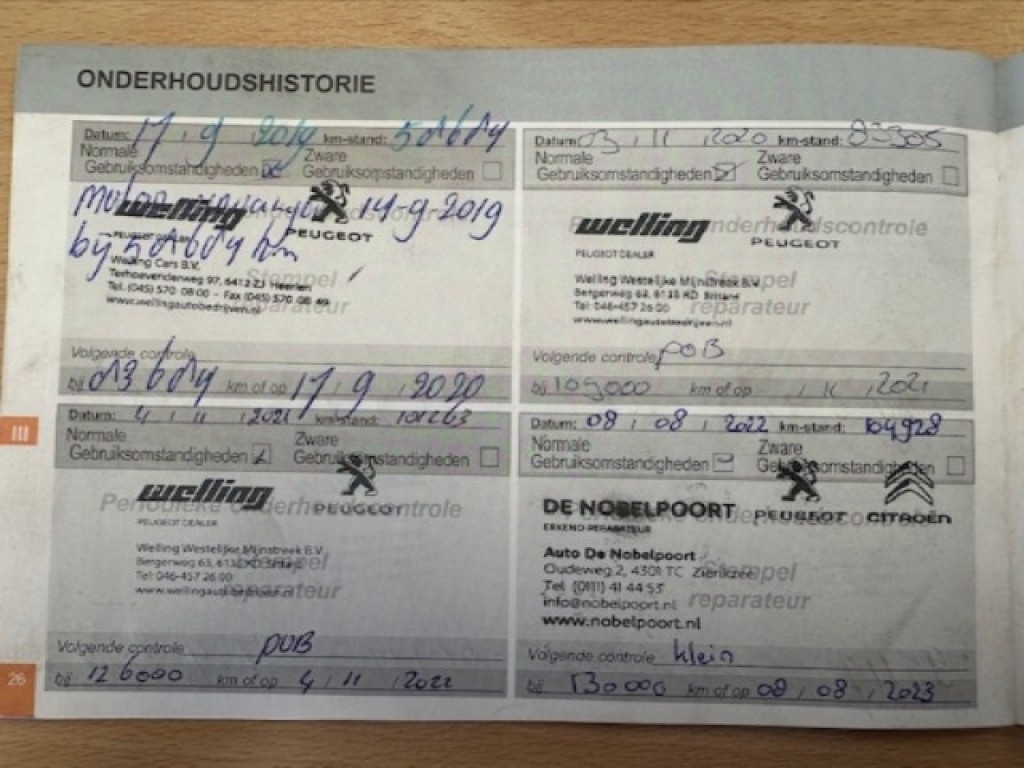 ONDERHOUDSHISTORIE
Datum: 17 / 9 / 2019 km-stand: 58684
Normale Gebruiksomstandigheden
Zware Gebruiksomstandigheden
Motor vervangen 14-9-2019
bij 58684 km
welling
PEUGEOT
PEUGEOT DEALER
Welling Cars B.V.
Terhoevenderweg 97, 6412 ZJ Heerlen
Tel. (045) 570 08 00 - Fax (045) 570 08 49
www.wellingautobedrijven.nl
Stempel
reparateur
Volgende controle
bij 83684 km of op 17 / 9 / 2020
Datum: 03 / 11 / 2020 km-stand: 83305
Normale Gebruiksomstandigheden
Zware Gebruiksomstandigheden
Periodieke onderhoudscontrole
welling
PEUGEOT
PEUGEOT DEALER
Welling Westelijke Mijnstreek B.V.
Bergerweg 63, 6135 KD Sittard
Tel: 046-457 26 00
www.wellingautobedrijven.nl
Stempel
reparateur
Volgende controle POB
bij 109000 km of op / 11 / 2021
Datum: 4 / 11 / 2021 km-stand: 101263
Normale Gebruiksomstandigheden
Zware Gebruiksomstandigheden
Periodieke onderhoudscontrole
welling
PEUGEOT
PEUGEOT DEALER
Welling Westelijke Mijnstreek B.V.
Bergerweg 63, 6135 KD Sittard
Tel: 046-457 26 00
Stempel
reparateur
Volgende controle POB
bij 126000 km of op 4 / 11 / 2022
Datum: 08 / 08 / 2022 km-stand: 104928
Normale Gebruiksomstandigheden
Zware Gebruiksomstandigheden
DE NOBELPOORT
PEUGEOT CITROËN
ERKEND REPARATEUR
Auto De Nobelpoort
Oudeweg 2, 4301 TC Zierikzee
Tel. (0111) 41 44 53
info@nobelpoort.nl
www.nobelpoort.nl
Stempel
reparateur
Volgende controle klein
bij 130000 km of op 08 / 08 / 2023
III
26